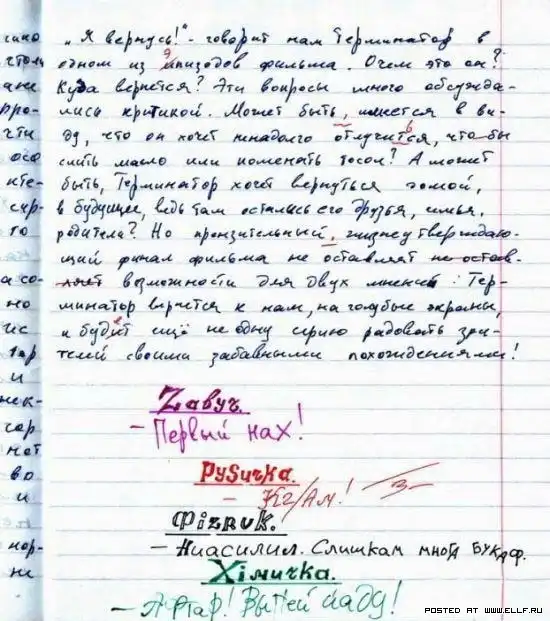 „Я вернусь!" - говорит нам Терминатор в
одном из эпизодов фильма. О чем это он?
Куда вернется? Эти вопросы много обсужда-
лись критикой. Может быть, имеется в ви-
ду, что он хочет ненадолго отлучится, что бы
слить масло или поменять тосол? А может
быть, Терминатор хочет вернуться домой,
в будущее, ведь там остались его друзья, семья,
родители? Но пронзительный, жизнеутверждаю-
щий финал фильма не оставляет не остав-
ляет возможности для двух мнений: Тер-
минатор вернется к нам, на голубые экраны,
и будет ещё не одну серию радовать зри-
телей своими забавными похождениями!
Zавуч.
- Первый нах!
РУSиЧКа.
- КГ/Ам! 3-
Фіzруk.
- Ниасилил. Слишкам многа букаф.
Хімичка.
- Афтар! Выпей йаду!
POSTED AT WWW.ELLF.RU